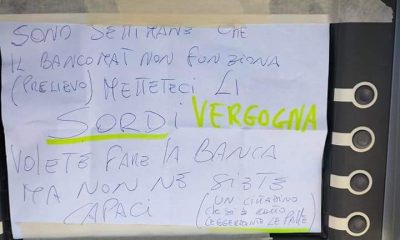 SONO SETTIMANE CHE
IL BANCOMAT NON FUNZIONA
(PRELIEVO) METTETECI LI
SORDI VERGOGNA
VOLETE FARE LA BANCA
MA NON NE SIETE
CAPACI
(UN CITTADINO
CHE SI È ROTTO
LEGGERMENTE LE PALLE